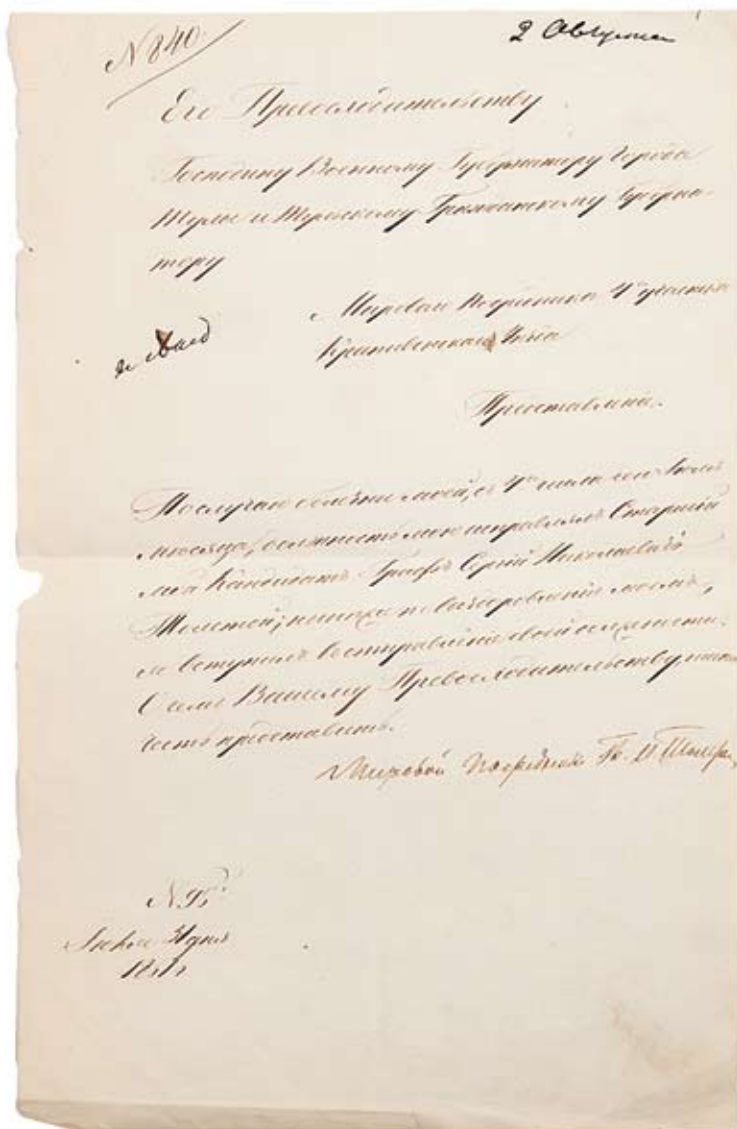 N 840.
2 Августа
Его Превосходительству
Господину Военному Губернатору Города
Тулы и Тульскому Гражданскому Губерна-
тору
Мироваго Посредника 4го участка
Крапивенскаго Уезда
к делу
Представление.
По случаю болезни моей, с 4го числа сего Июля
месяца, должность мою исправлял Старший
мой Кандидатъ Графъ Сергий Николаевичъ
Толстой; ныне же по выздоровлении моемъ,
я вступилъ въ исправление своей должности.
О семъ Вашему Превосходительству имею
честь представить.
Мировой Посредникъ Гр. Л Толстой
Июля 31 дня